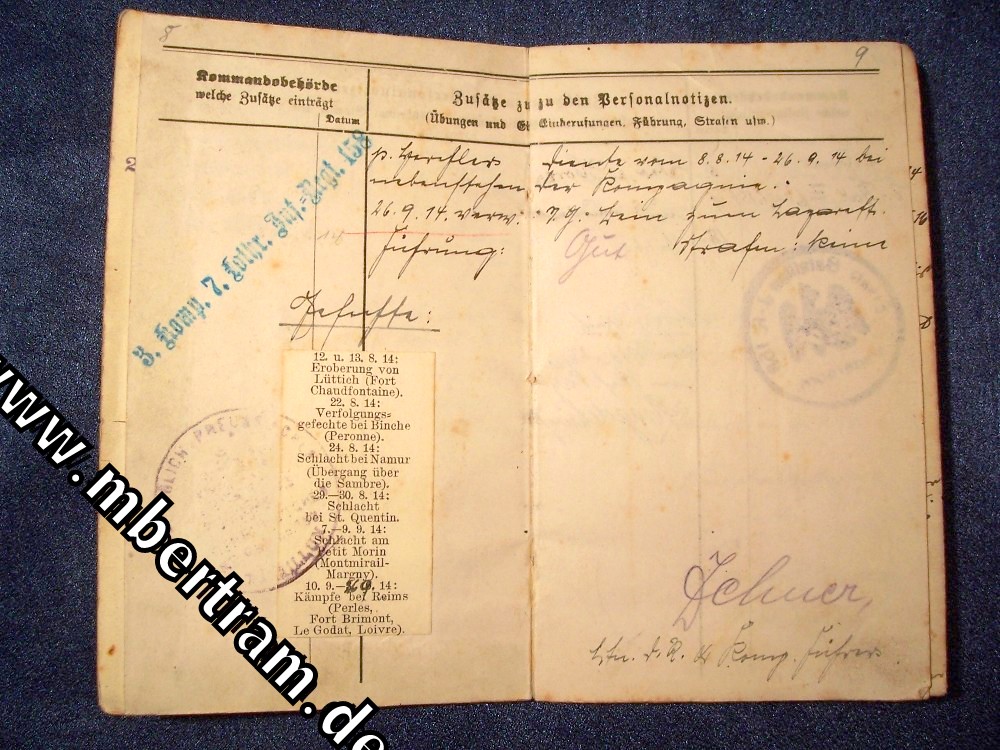 8
9
Kommandobehörde
welche Zusätze einträgt
Datum
Zusätze zu zu den Personalnotizen.
(Übungen und Ei Einberufungen, Führung, Strafen usw.)
2
3. Komp. 7. Lothr. Inf.-Regt. 158
p. diente vom 8.8.14 - 26.9.14 bei
nebenstehen der Kompagnie.
26.9.14. verw. Bein zum Lazarett.
Führung: Gut Strafen: keine
Gefechte:
12. u. 13. 8. 14:
Eroberung von
Lüttich (Fort
Chaudfontaine).
22. 8. 14:
Verfolgungs-
gefechte bei Binche
(Peronne).
24. 8. 14:
Schlacht bei Namur
(Übergang über
die Sambre).
29.—30. 8. 14:
Schlacht
bei St. Quentin.
7.—9. 9. 14:
Schlacht am
Petit Morin
(Montmirail-
Margny).
10. 9.—26. 9. 14:
Kämpfe bei Reims
(Perles,
Fort Brimont,
Le Godat, Loivre).
Ltn. d. R. u. Komp. Führer.
www.mbertram.de